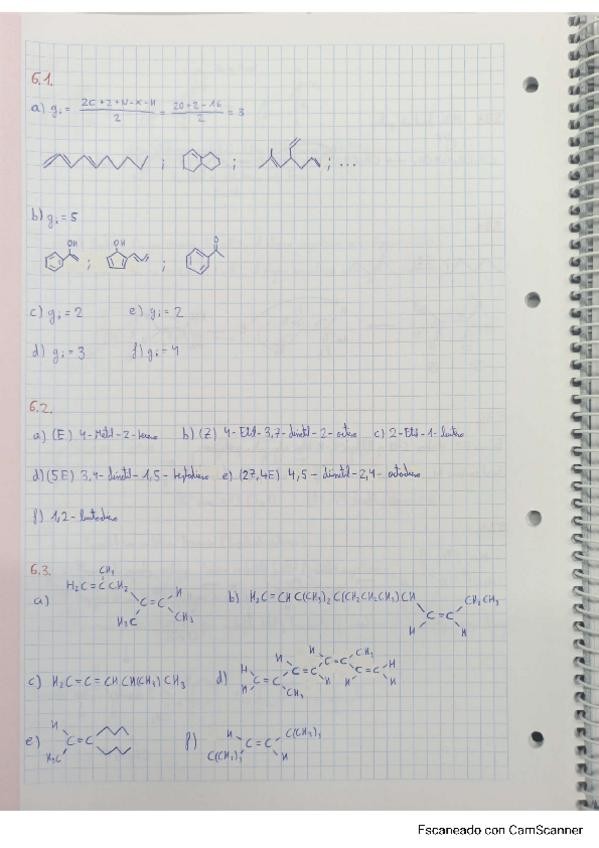 6.1.
a) gᵢ = 2C+2+N-X-H / 2 = 20+2-16 / 2 = 3
; ; ; ...
b) gᵢ = 5
OH OH O
; ;
c) gᵢ = 2 e) gᵢ = 2
d) gᵢ = 3 f) gᵢ = 4
6.2.
a) (E) 4-Metil-2- b) (Z) 4-Etil-3,7-dimetil-2-octeno c) 2-Etil-1-
d) (5E) 3,4-dimetil-1,5-heptadieno e) (2Z,4E) 4,5-dimetil-2,4-octadieno
f) 1,2-butadieno
6.3.
CH₃
a) H₂C=CCH₂ H
C=C
H₃C CH₃
b) H₂C=CHC(CH₃)₂C(CH₂CH₂CH₃)CH CH₂CH₃
C=C
H H
c) H₂C=C=CHCH(CH₃)CH₃
d) H H H CH₃ H
C=C C=C C=C C=C
H CH₃ H H H
e) H
C=C
H₃C
f) H C(CH₃)₃
C=C
C(CH₃)₃ H
Escaneado con CamScanner